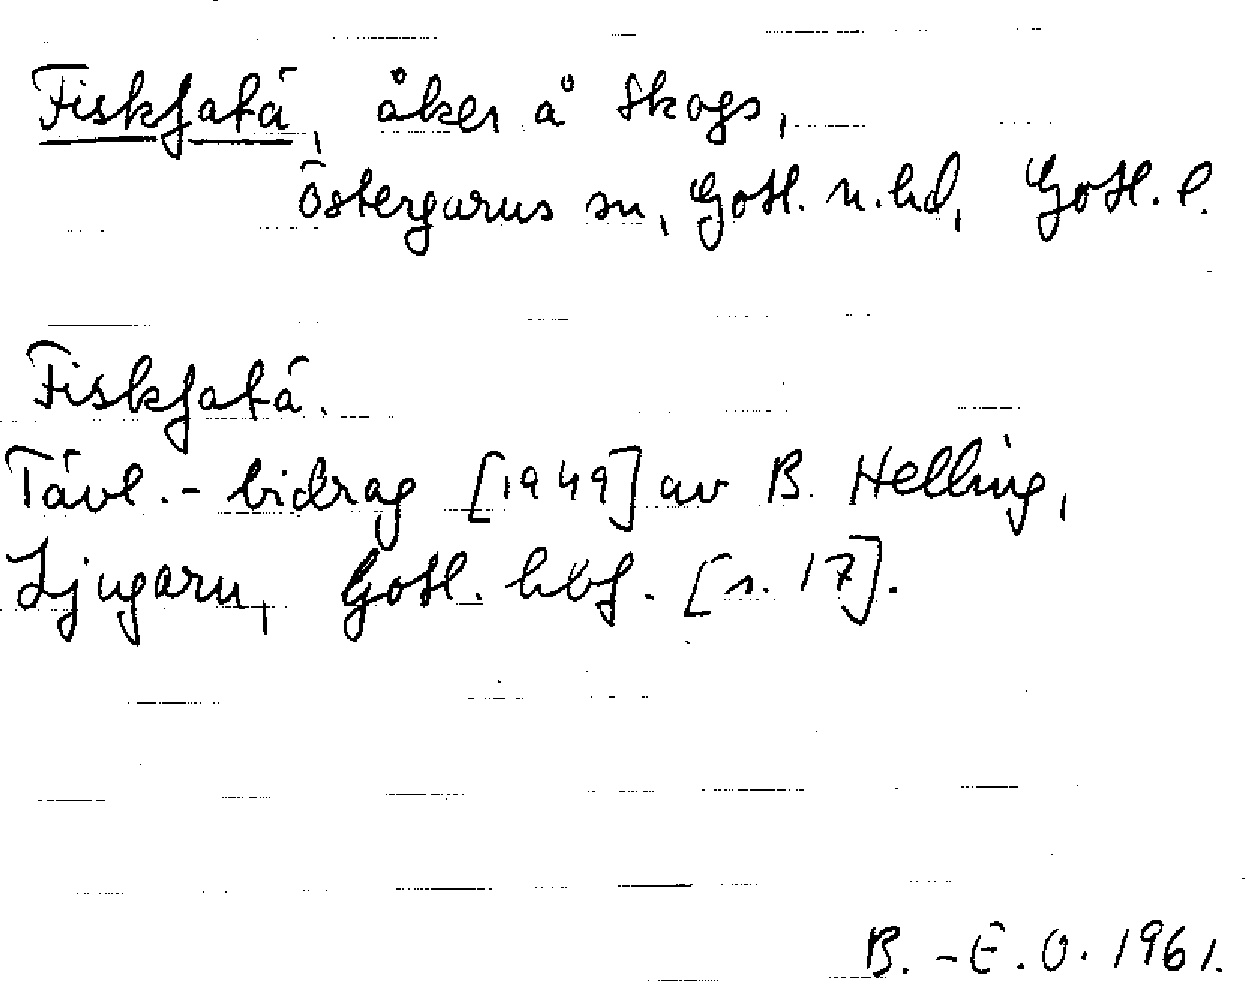 Fiskfatä, åker å Skogs,
Östergarns sn, Gotl. n. hd, Gotl. l.
Fiskfatä.
Tävl.-bidrag [1949] av B. Helling,
Ljugarn, Gotl. hbf. [s. 17].
B.-E. O. 1961.